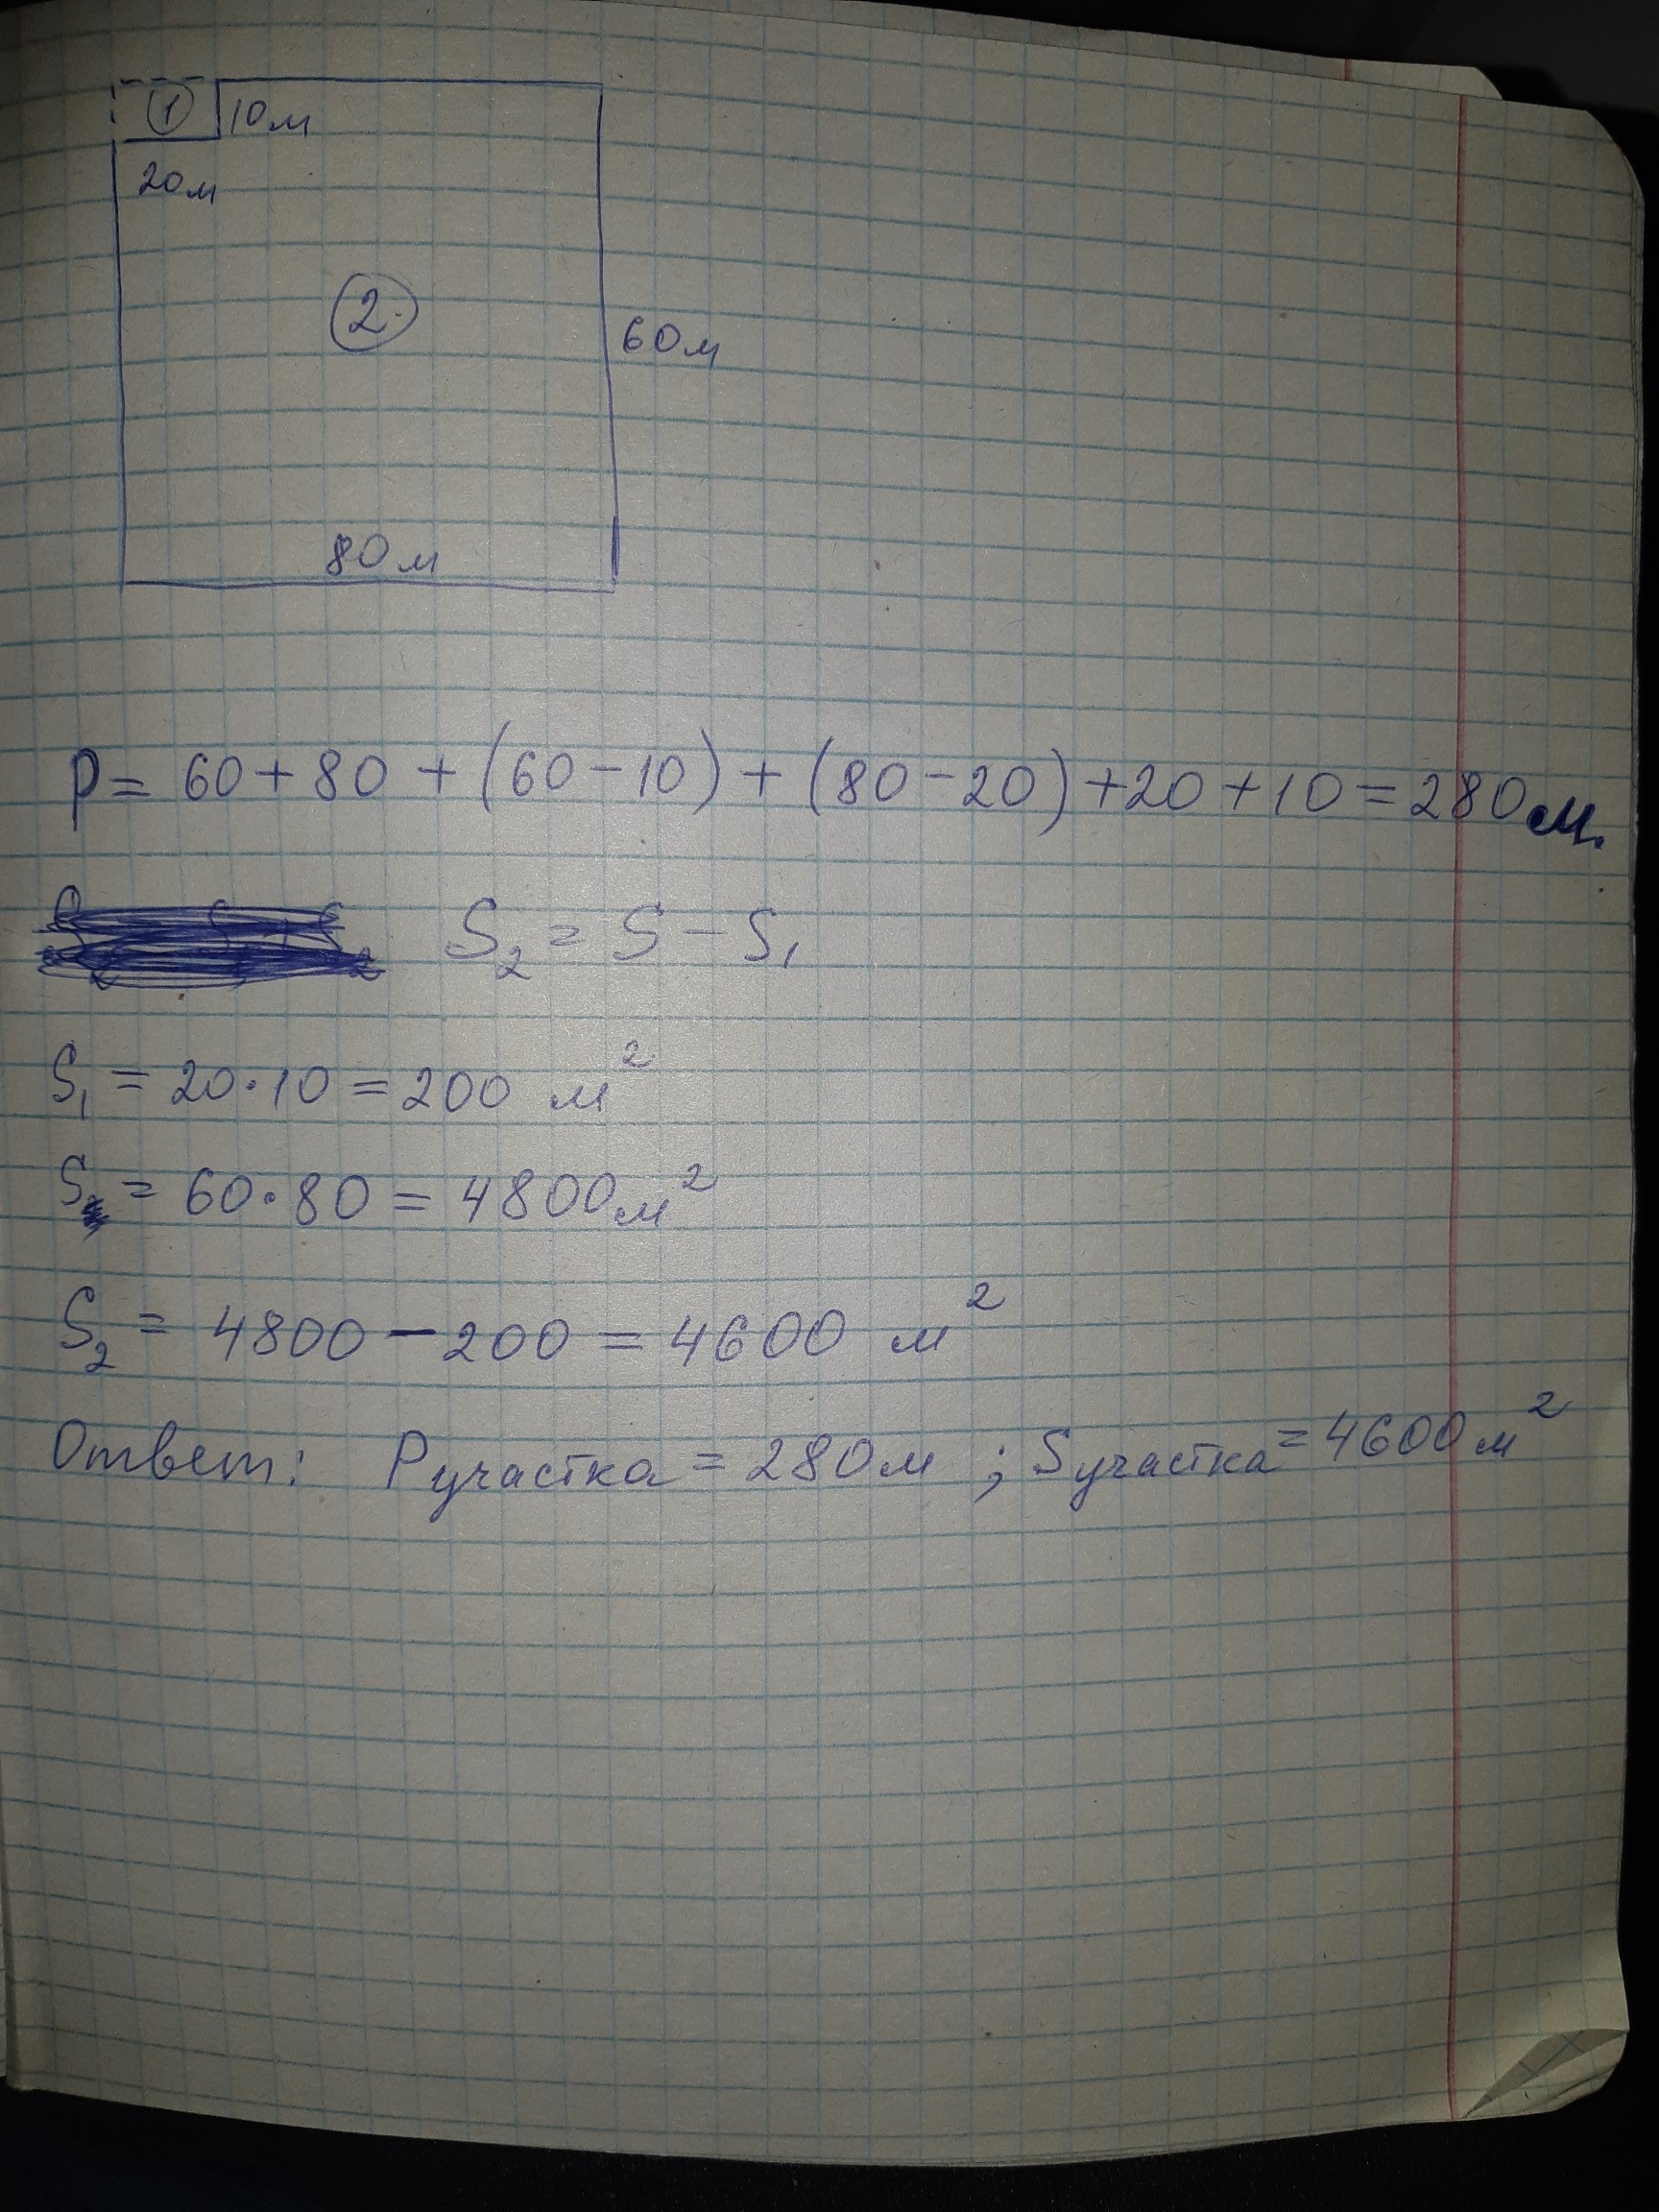 1 10м
20м
2
60м
80м
P = 60 + 80 + (60 - 10) + (80 - 20) + 20 + 10 = 280м.
S₂ = S - S₁
S₁ = 20 · 10 = 200 м²
S = 60 · 80 = 4800м²
S₂ = 4800 - 200 = 4600 м²
Ответ: Pучастка = 280м ; Sучастка = 4600м²